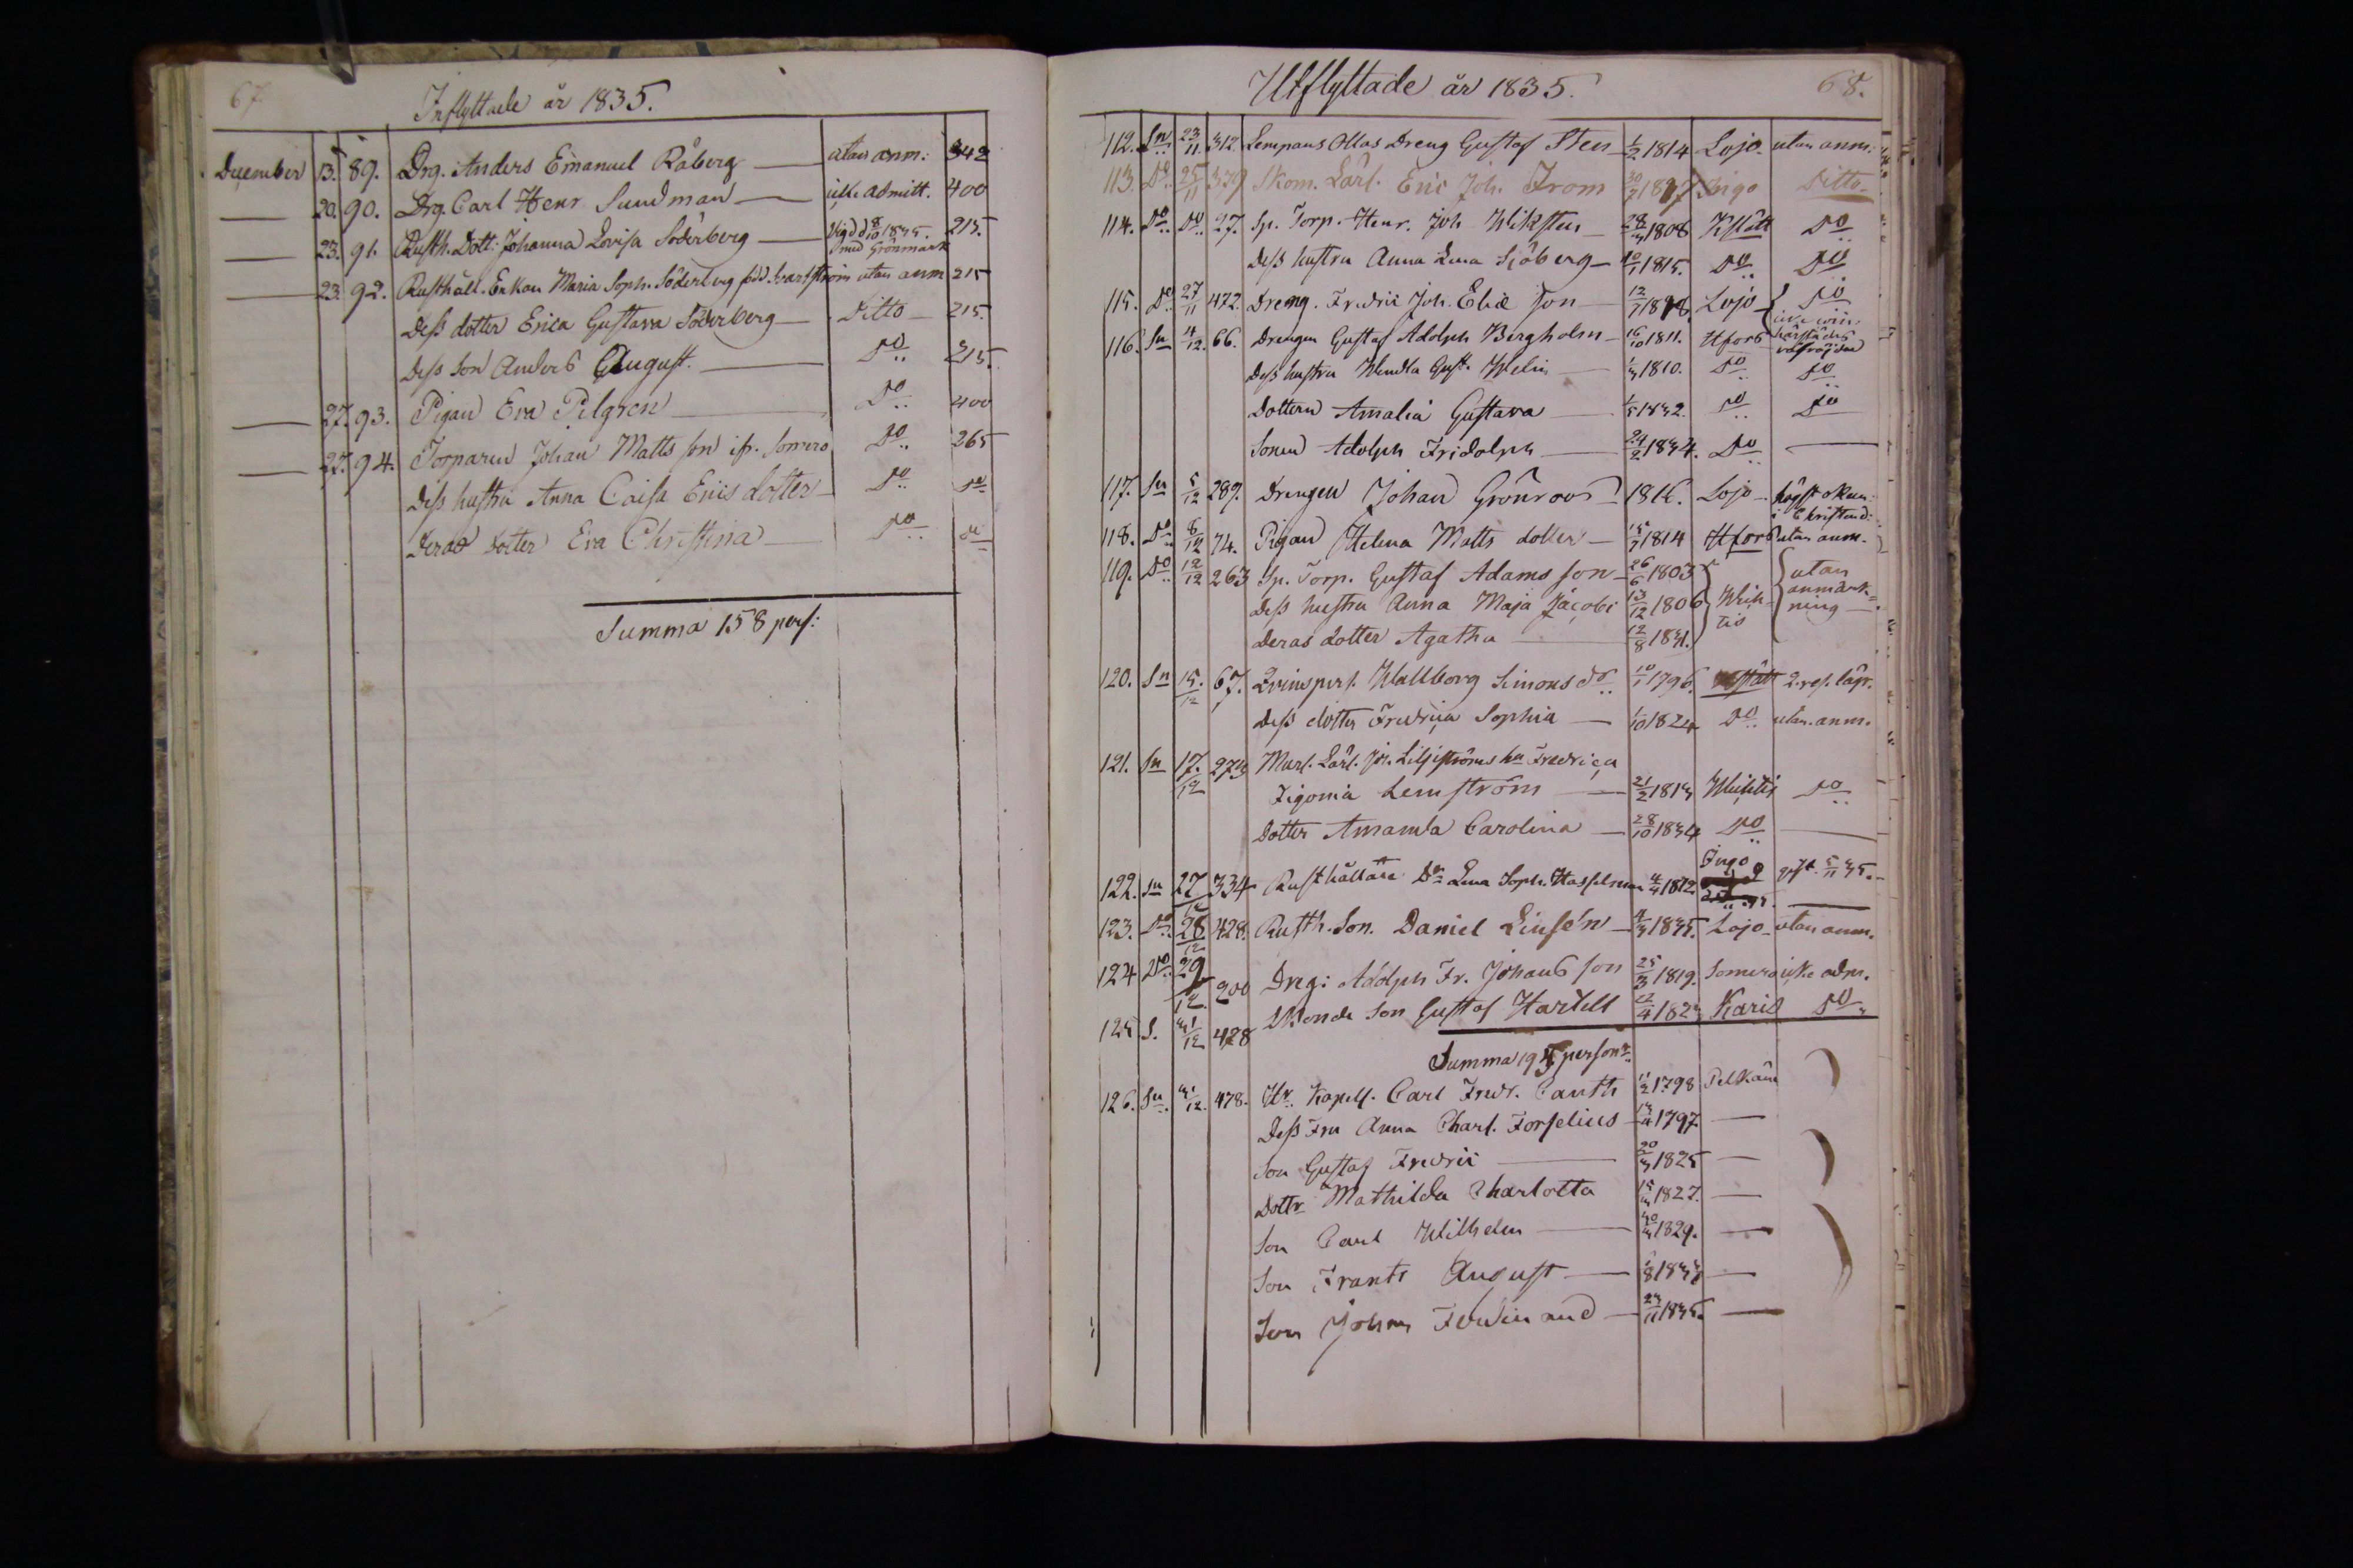 67
Inflyttade år 1835.
December 13. 89. Drg. Anders Emanuel Råberg — utan anm: 342
— 20. 90. Drg. Carl Henr Sundman — icke admitt. 400
— 23. 91. Rusth. Dott: Johanna Lovisa Söderberg — Vigd d 8/10 1835. med Grönmark 215.
— 23. 92. Rusthåll. Enkan Maria Soph. Söderberg född Svartström utan anm 215
Dess dotter Erica Gustava Söderberg — Ditto — 215.
Dess Son Anders August. — Do 215.
— 27. 93. Pigan Eva Pilgren — Do 400
— 27. 94. Torparen Johan Matts son Somero Do 265
Dess hustru Anna Caisa Erics dotter — Do Do
Deras dotter Eva Christina — Do Do
Summa 158 pers:
Utflyttade år 1835.
68.
112. Sn 23/11 312. Lempans Ollas Dreng Gustaf Sten — 1/2 1814 Lojo utan anm:
113. Do 25/11 379 Skom. Lärl. Eric Joh. From 1817 Ingo Ditto
114. Do Do 27. Sp. Torp. Henr. Joh Wiksten — 28/3 1808 Kslätt Do
Dess hustru Anna Lena Sjöberg — 1815. Do Do
115. Do 27/11 472. Dreng. Fredric Joh. Eliæ son — 12/7 1818. Lojo Do
116. Sn 4/12. 66. Drengen Gustaf Adolph Bergholm — 16/10 1811. Hfors härstädes
Dess hustru Wendla Gust. Welin — 1/3 1810. Do Do
Dottern Amalia Gustava — 1/5 1832. Do Do
Sonen Adolph Fridolph — 24/2 1834. Do —
117. Sn 5/12 289. Drengen Johan Grönroos — 1816. Lojo högst okun: i Christend:
118. Do 8/12 74. Pigan Helena Matts dotter — 15/7 1814 Hfors utan anm.
119. Do 12/12 263 Sp. Torp. Gustaf Adams son — 26/6 1803 utan
Dess hustru Anna Maja Jacobs 13/12 1806 Wichtis anmärkning
Deras dotter Agatha — 12/8 1831.
120. Sn 15/12 67. Qvinspers. Wallborg Simons dr 10/1 1796. Kslätt 2. res. lägr.
Dess dotter Fredrica Sophia — 1/10 1824 Do utan anm.
121. Sn 17/12 273 Murl. Lärl. Joh. Liljeströms hu Fredrica
Figonia Lemström — 21/2 1813 Wichtis Do
Dotter Amanda Carolina — 28/10 1834 Do —
122. Sn 27/12 334 Rusthållare Dr Lena Soph. Hasselman 4/4 1812. Ingo gift. 5/11 35.
123. Do 28/12 428. Rusth. Son. Daniel Linsén — 4/3 1835. Lojo utan anm.
124 Do 29/12 200 Dreg: Adolph Fr. Johans son 25/3 1819. Somero icke adm.
125 S. 31/12 428 Bonde Son Gustaf Hartell 1823 Karis Do
Summa personer
126. Sn 31/12. 478. Hr. Kapell. Carl Fredr. Canth 11/2 1798 Pelkäne
Dess Fru Anna Charl. Forselius — 13/4 1797. —
Son Gustaf Fredric — 20/3 1825 —
Dottr Mathilda Charlotta 15/3 1827. —
Son Carl Wilhelm — 30/3 1829. —
Son Frants August — 1/8 1833 —
Son Johan Ferdinand — 23/11 1835. —